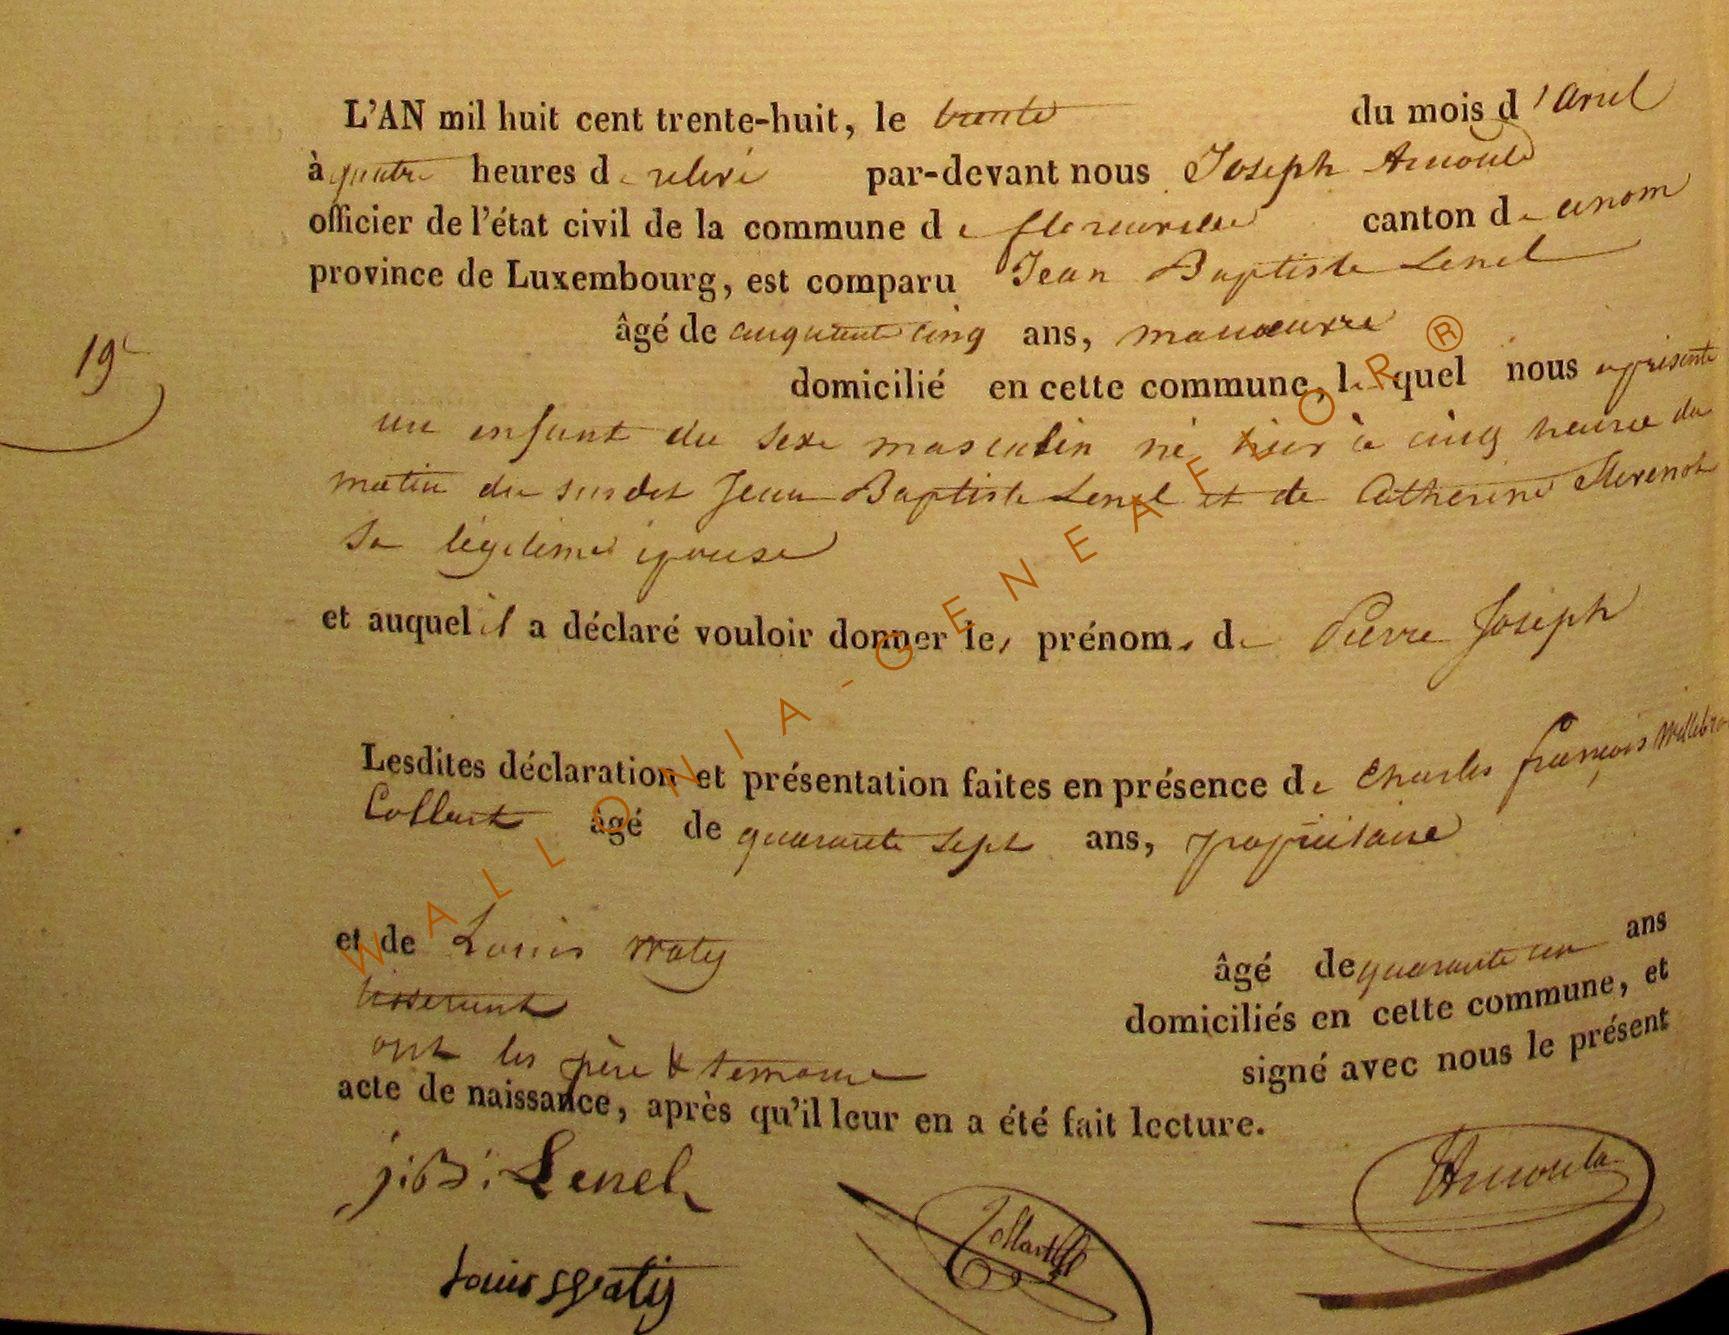 L'AN mil huit cent trente-huit, le trente du mois d'avril
à quatre heures de relevé par-devant nous Joseph Arnould
officier de l'état civil de la commune de florenville canton de
province de Luxembourg, est comparu Jean Baptiste Lenel
âgé de cinquante cinq ans, manœuvre
19e
domicilié en cette commune, lequel nous a présenté
un enfant du sexe masculin né hier à cinq heures du
matin du susdit Jean Baptiste Lenel et de Catherine
sa légitime épouse
et auquel il a déclaré vouloir donner les prénoms de Pierre Joseph
Lesdites déclaration et présentation faites en présence de Charles françois
Collart âgé de quarante sept ans, propriétaire
et de Louis Watry âgé de quarante un ans
tisserant domiciliés en cette commune, et
ont les père & temoins signé avec nous le présent
acte de naissance, après qu'il leur en a été fait lecture.
j:B: Lenel
Arnould
Collart
Louis Watry
WALLONIA-GENEAFLOR®